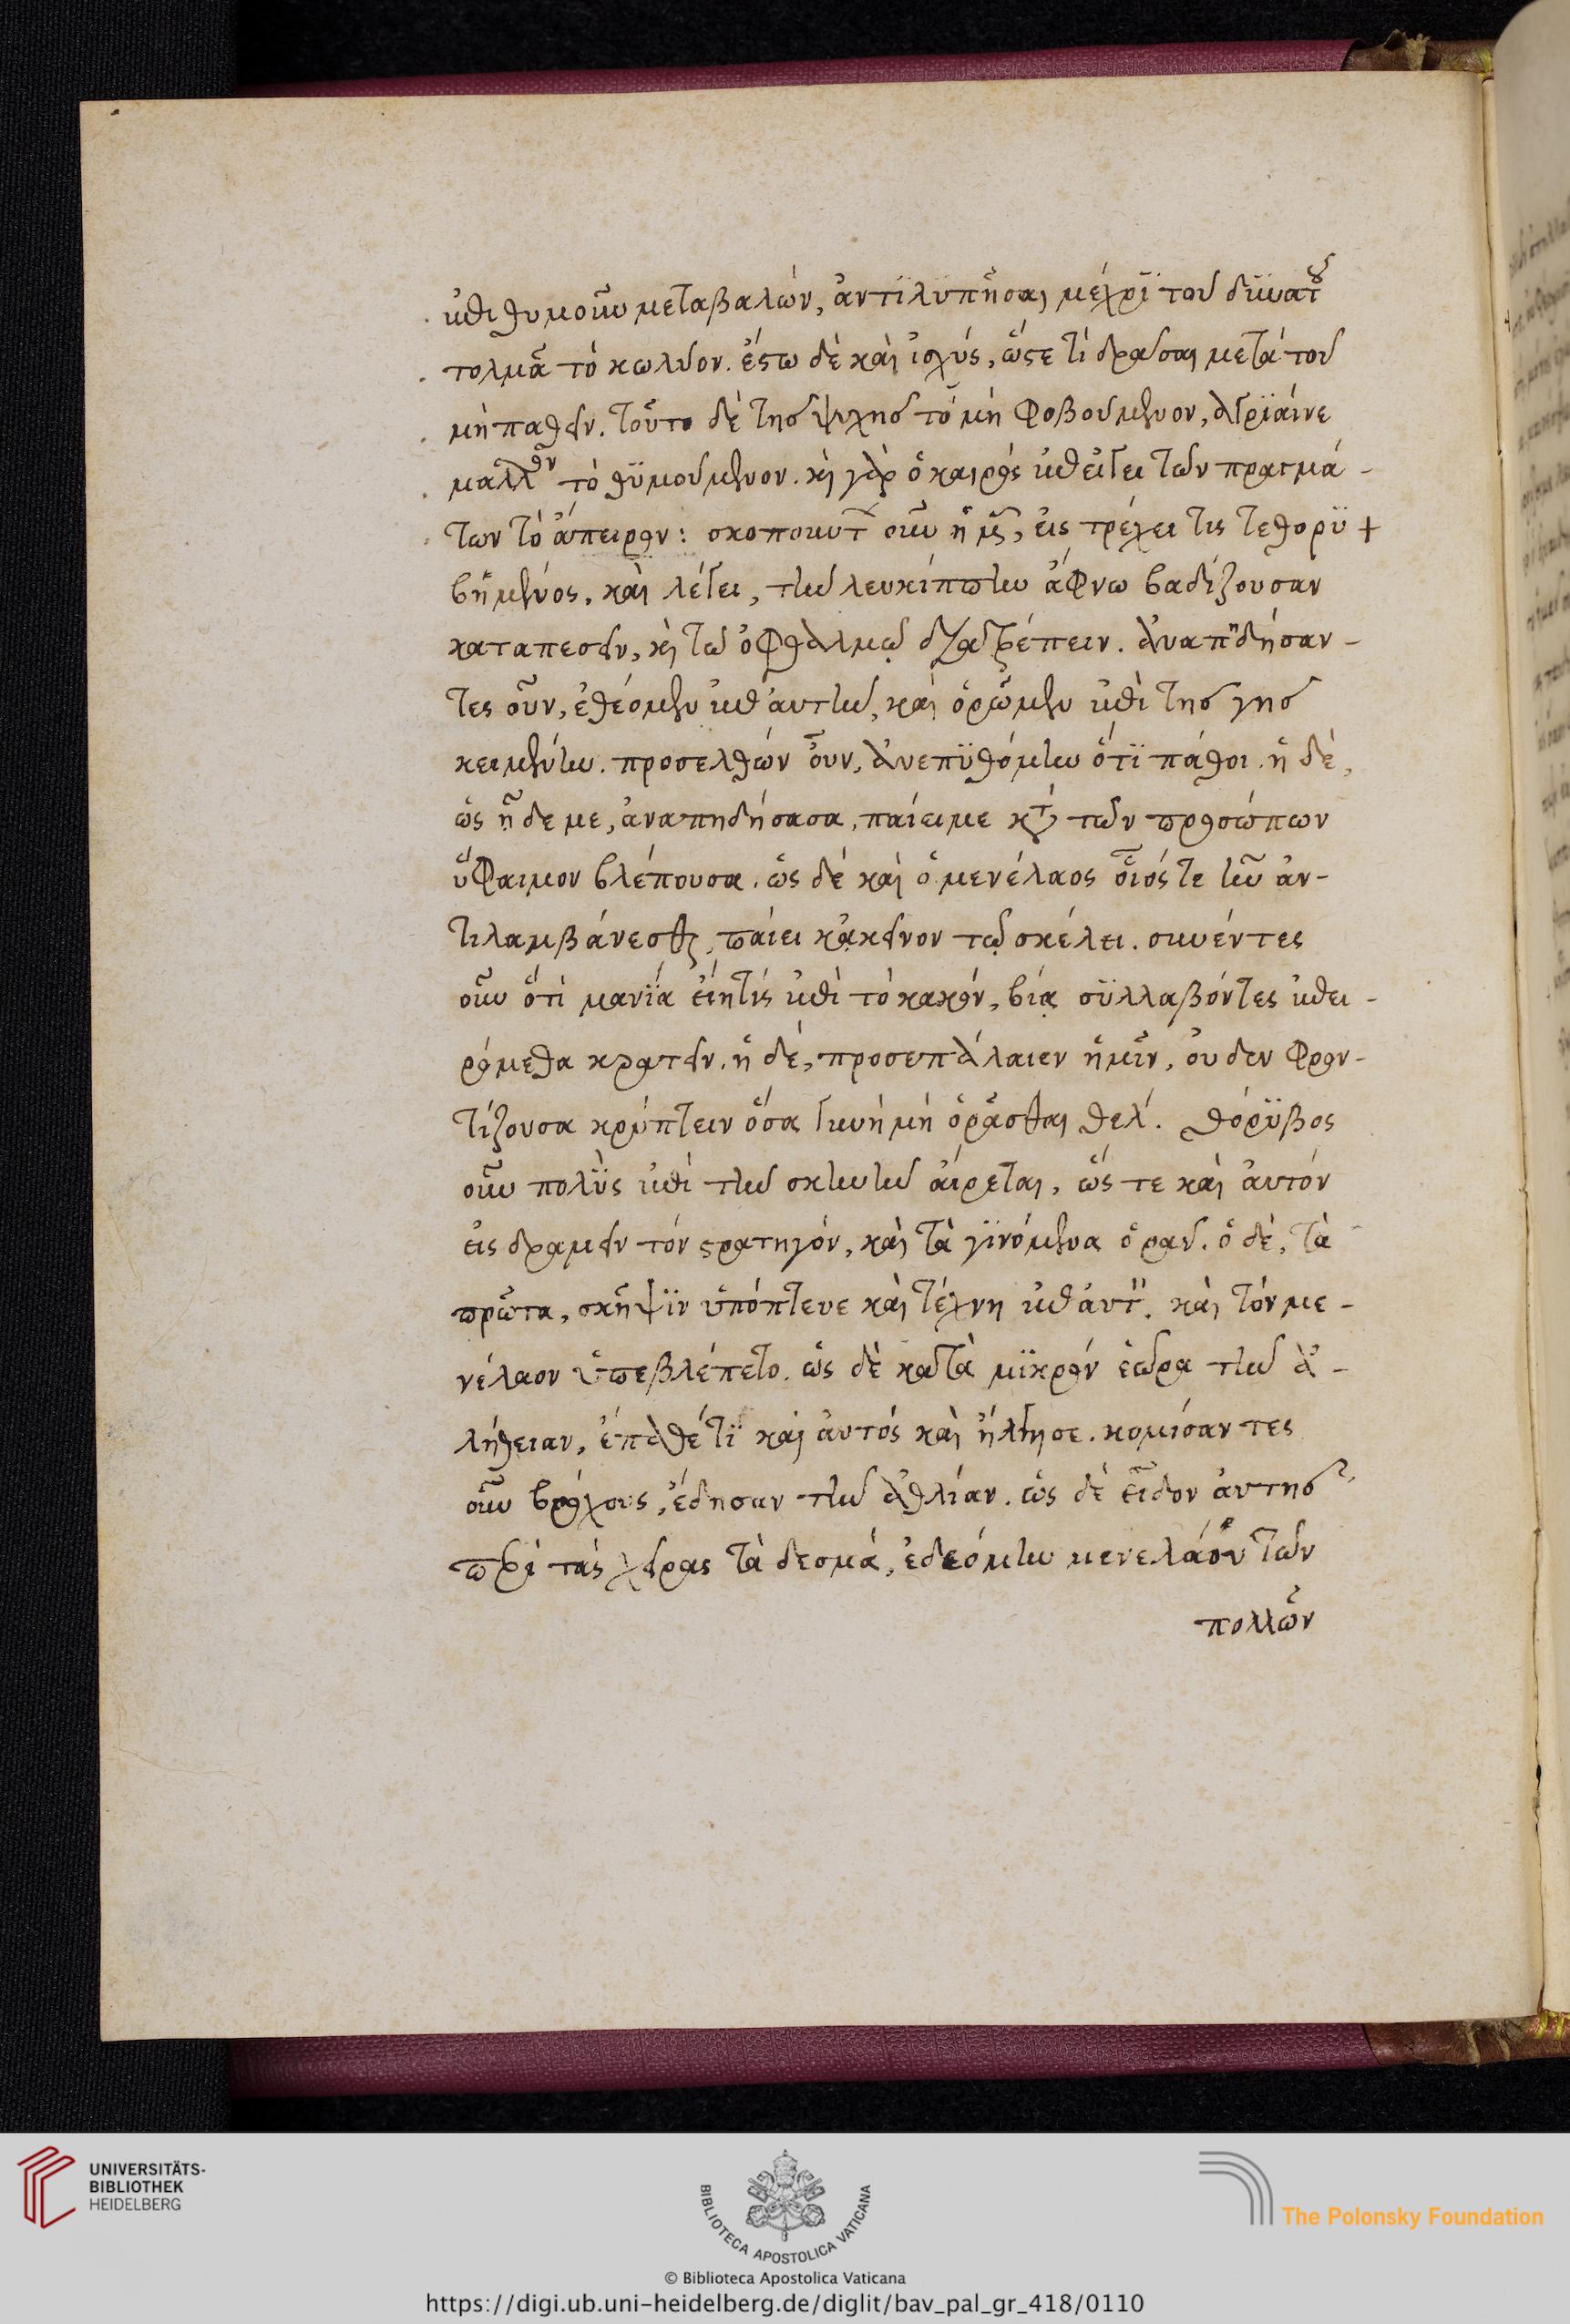 ἐπιθυμοῦν μεταβαλὼν, ἀντιλυπῆσαι μέχρι τοῦ δυνατοῦ
τολμᾶ τὸ κωλύον. ἔστω δὲ καὶ ἰσχύς, ὥστε τί δρᾶσαι μετὰ τοῦ
μὴ παθεῖν. τοῦτο δὲ τῆς ψυχῆς τὸ μὴ φοβούμενον, ἀγριαίνει
μᾶλλον τὸ θυμούμενον. καὶ γὰρ ὁ καιρὸς ἐπείγει τῶν πραγμά-
των τὸ ἄπειρον: σκοπούντων οὖν ἡμῶν, εἰς τρέχει τις τεθορυ +
βημένος, καὶ λέγει, τὴν λευκίππην ἄφνω βαδίζουσαν
καταπεσεῖν, καὶ τὼ ὀφθαλμῷ διαστρέπειν. ἀναπηδήσαν-
τες οὖν, ἐθέομεν ἐπ' αὐτὴν, καὶ ὁρῶμεν ἐπὶ τῆς γῆς
κειμένην. προσελθὼν οὖν, ἀνεπυθόμην ὅτι πάθοι. ἡ δὲ,
ὡς ἦδε με, ἀναπηδήσασα, παίει με κατὰ τῶν προσώπων
ὕφαιμον βλέπουσα. ὡς δὲ καὶ ὁ μενέλαος οἷός τε ἦν ἀν-
τιλαμβάνεσθαι, παίει κἀκεῖνον τῷ σκέλει. συνέντες
οὖν ὅτι μανία εἴη τις ἐπὶ τὸ κακόν, βίᾳ συλλαβόντες ἐπει-
ρόμεθα κρατεῖν. ἡ δὲ, προσεπάλαιεν ἡμῖν, οὐδεν φρον-
τίζουσα κρύπτειν ὅσα γυνὴ μὴ ὁρᾶσθαι θελ. θόρυβος
οὖν πολὺς ἐπὶ τὴν σκηνὴν αἴρεται, ὥς τε καὶ αὐτὸν
εἰς δραμεῖν τὸν στρατηγόν, καὶ τὰ γινόμενα ὁρᾶν. ὁ δὲ, τὰ
πρῶτα, σκῆψιν ὑπόπτευε καὶ τέχνη ἐπ' αὐτὴν. καὶ τὸν με-
νέλαον ὑπεβλέπετο. ὡς δὲ κατὰ μικρὸν ἑώρα τὴν ἀ-
λήθειαν, ἔπαθέ τι καὶ αὐτὸς καὶ ἤλγησε. κομίσαντες
οὖν βρόχους, ἔδησαν τὴν ἀθλίαν. ὡς δὲ εἶδον αὐτῆς
περὶ τὰς χεῖρας τὰ δεσμά, ἐδεόμην μενελάου τῶν
πολλῶν
UNIVERSITÄTS-
BIBLIOTHEK
HEIDELBERG
BIBLIOTECA APOSTOLICA VATICANA
© Biblioteca Apostolica Vaticana
The Polonsky Foundation
https://digi.ub.uni-heidelberg.de/diglit/bav_pal_gr_418/0110